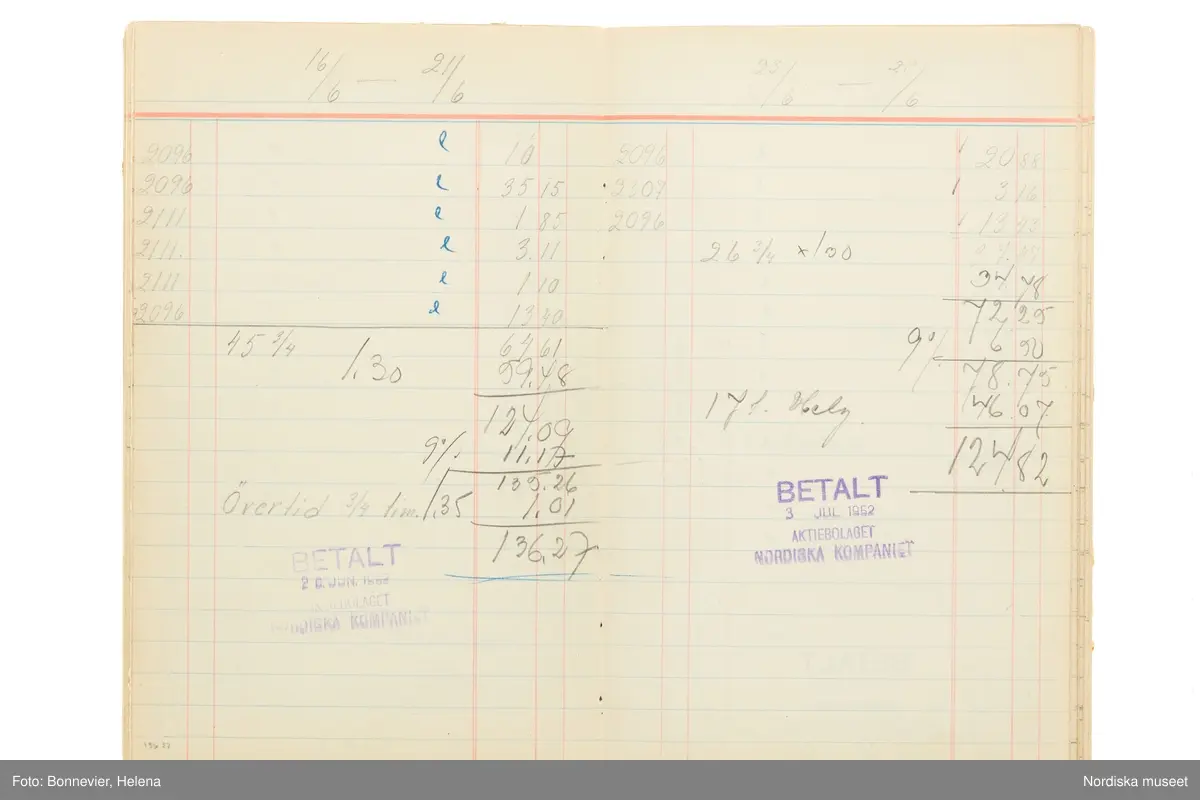 16/6 — 21/6
2096 e 10
2096 e 35 15
2111 e 1 85
2111. e 3.11
2111 e 1 10
2096 e 13 40
45 3/4 64 61
1,30 59,48
124,09
9% 11,17
135,26
Övertid 3/4 tim. 1,35 1,01
136,27
BETALT
2 6. JUN. 1952
AKTIEBOLAGET
NORDISKA KOMPANIET
23/6 — /6
2096 20 88
2307 3 16
2096 13 43
26 3/4 x 130
34 78
72 25
9% 6 50
78.75
17 t. Helg. 46 07
124,82
BETALT
3 JUL 1952
AKTIEBOLAGET
NORDISKA KOMPANIET
Foto: Bonnevier, Helena
Nordiska museet